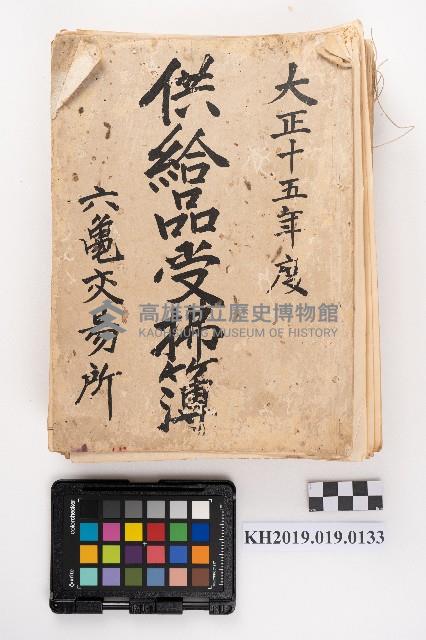 大正十五年度
供給品受拂簿
六龜交易所
高雄市立歷史博物館
KAOHSIUNG MUSEUM OF HISTORY
colorchecker
x-rite
KH2019.019.0133